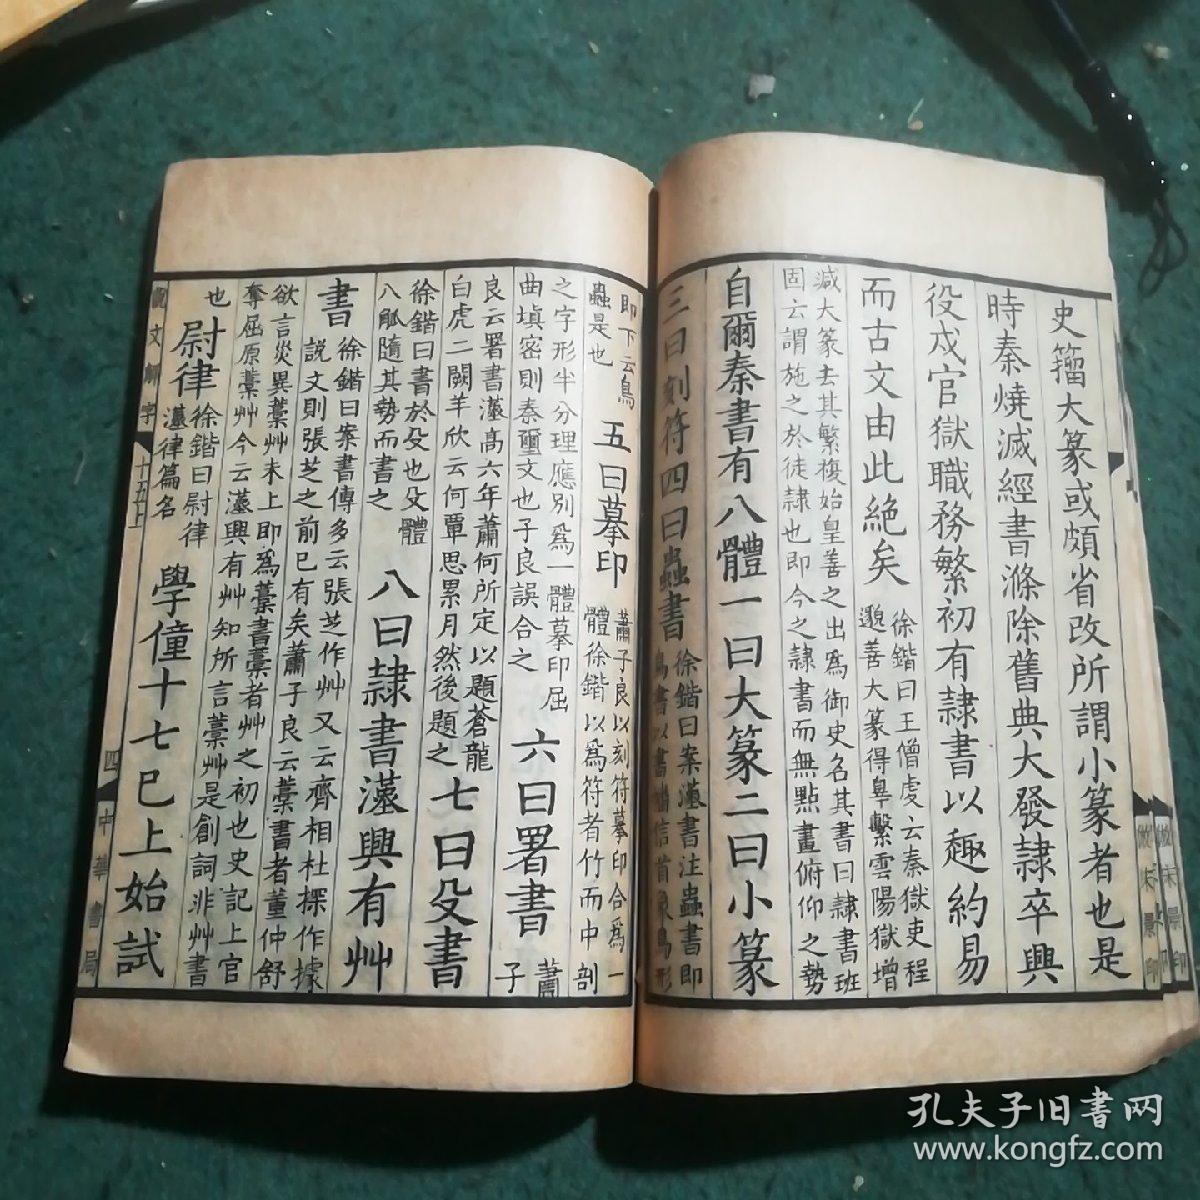 史籀大篆或頗省改所謂小篆者也是
時秦燒滅經書滌除舊典大發隸卒興
役戍官獄職務繁初有隸書以趣約易
而古文由此絶矣
徐鍇曰王僧虔云秦獄吏程
邈善大篆得辠繫雲陽獄增
減大篆去其繁複始皇善之出爲御史名其書曰隸書班
固云謂施之於徒隸也即今之隸書而無點畫俯仰之勢
自爾秦書有八體一曰大篆二曰小篆
三曰刻符四曰蟲書
徐鍇曰案漢書注蟲書即
鳥書以書幡信首象鳥形
即下云鳥
蟲是也
五曰摹印
蕭子良以刻符摹印合爲一
體徐鍇以爲符者竹而中剖
之字形半分理應別爲一體摹印屈
曲塡密則秦璽文也子良誤合之
六曰署書
蕭子
良云署書漢高六年蕭何所定以題蒼龍
白虎二闕羊欣云何覃思累月然後題之
七曰殳書
徐鍇曰書於殳也殳體
八觚隨其勢而書之
八曰隸書漢興有艸
書
徐鍇曰案書傳多云張芝作艸又云齊相杜探作據
說文則張芝之前已有矣蕭子良云藁書者董仲舒
欲言災異藁艸未上即爲藁書藁者艸之初也史記上官
奪屈原藁艸今云漢興有艸知所言藁艸是創詞非艸書
也
尉律
徐鍇曰尉律
漢律篇名
學僮十七已上始試
說文解字
十五上
四
中華書局